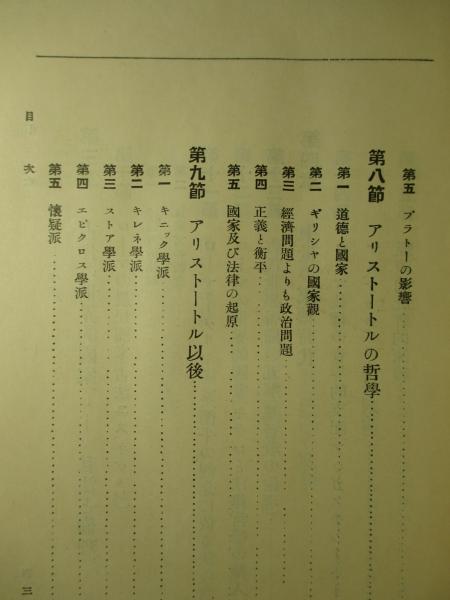 第五 プラトーの影響
第八節 アリストートルの哲學
第一 道德と國家
第二 ギリシャの國家觀
第三 經濟問題よりも政治問題
第四 正義と衡平
第五 國家及び法律の起原
第九節 アリストートル以後
第一 キニック學派
第二 キレネ學派
第三 ストア學派
第四 エピクロス學派
第五 懷疑派
目次
三